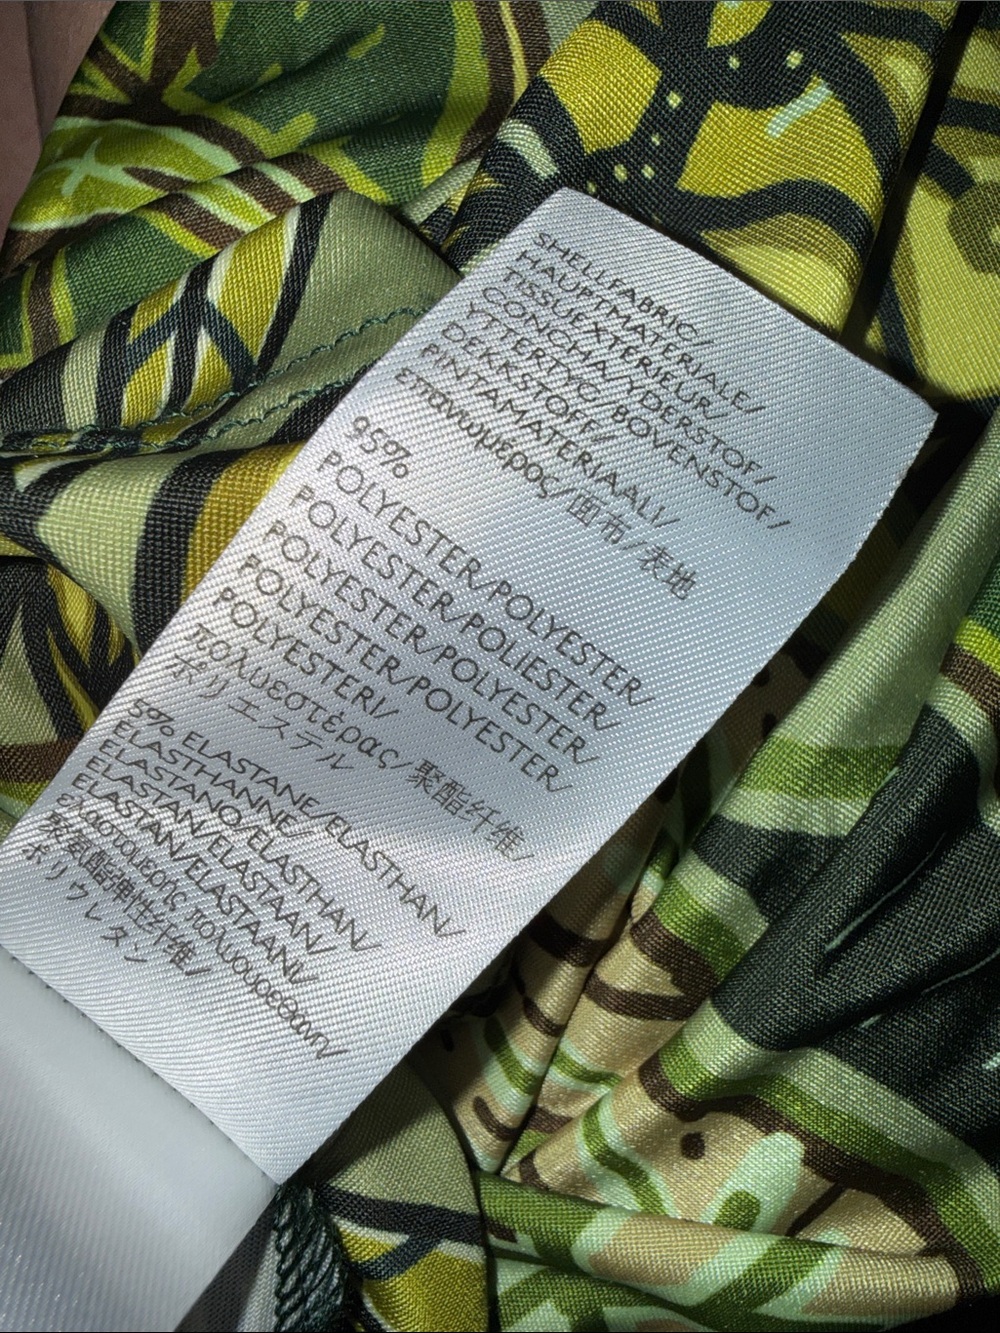 SHELLFABRIC/
HAUPTMATERIALE/
TISSUEXTERIEUR/
CONCHA/YDERSTOF/
YTTERTYG/BOVENSTOF/
DEKKSTOFF/
PINTAMATERIAALI/
επανωμέρος/面布/表地
95%
POLYESTER/POLYESTER/
POLYESTER/POLIESTER/
POLYESTER/POLYESTER/
POLYESTER/POLYESTER/
POLYESTERI/
πολωεστέρας/聚酯纤维/
ポリエステル
5% ELASTANE/ELASTHAN/
ELASTHANNE/
ELASTANO/ELASTHAN/
ELASTAN/ELASTAAN/
ELASTAN/ELASTAANI/
ελαστομερής πολωουρεθάνη/
聚氨酯弹性纤维/
ポリウレタン